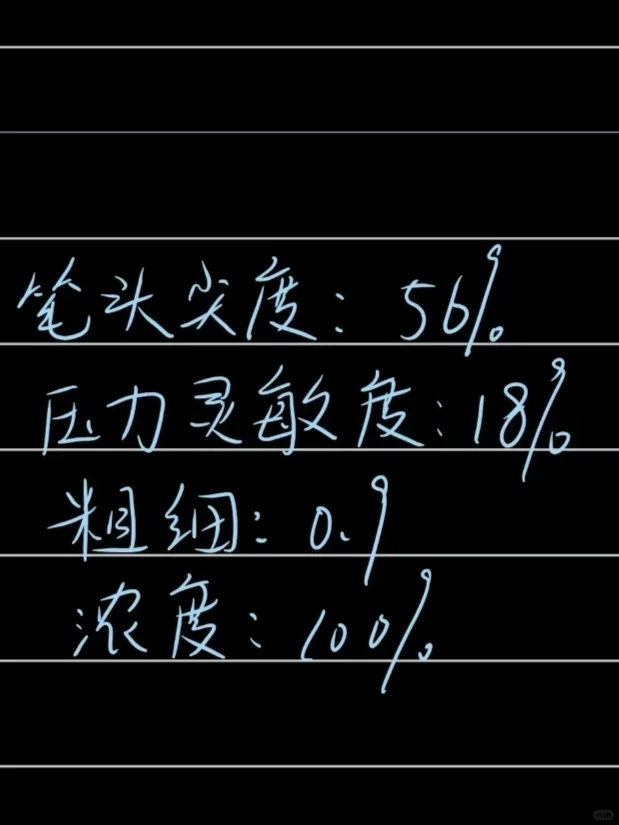 笔头尖度：56%
压力灵敏度：18%
粗细：0.9
浓度：100%